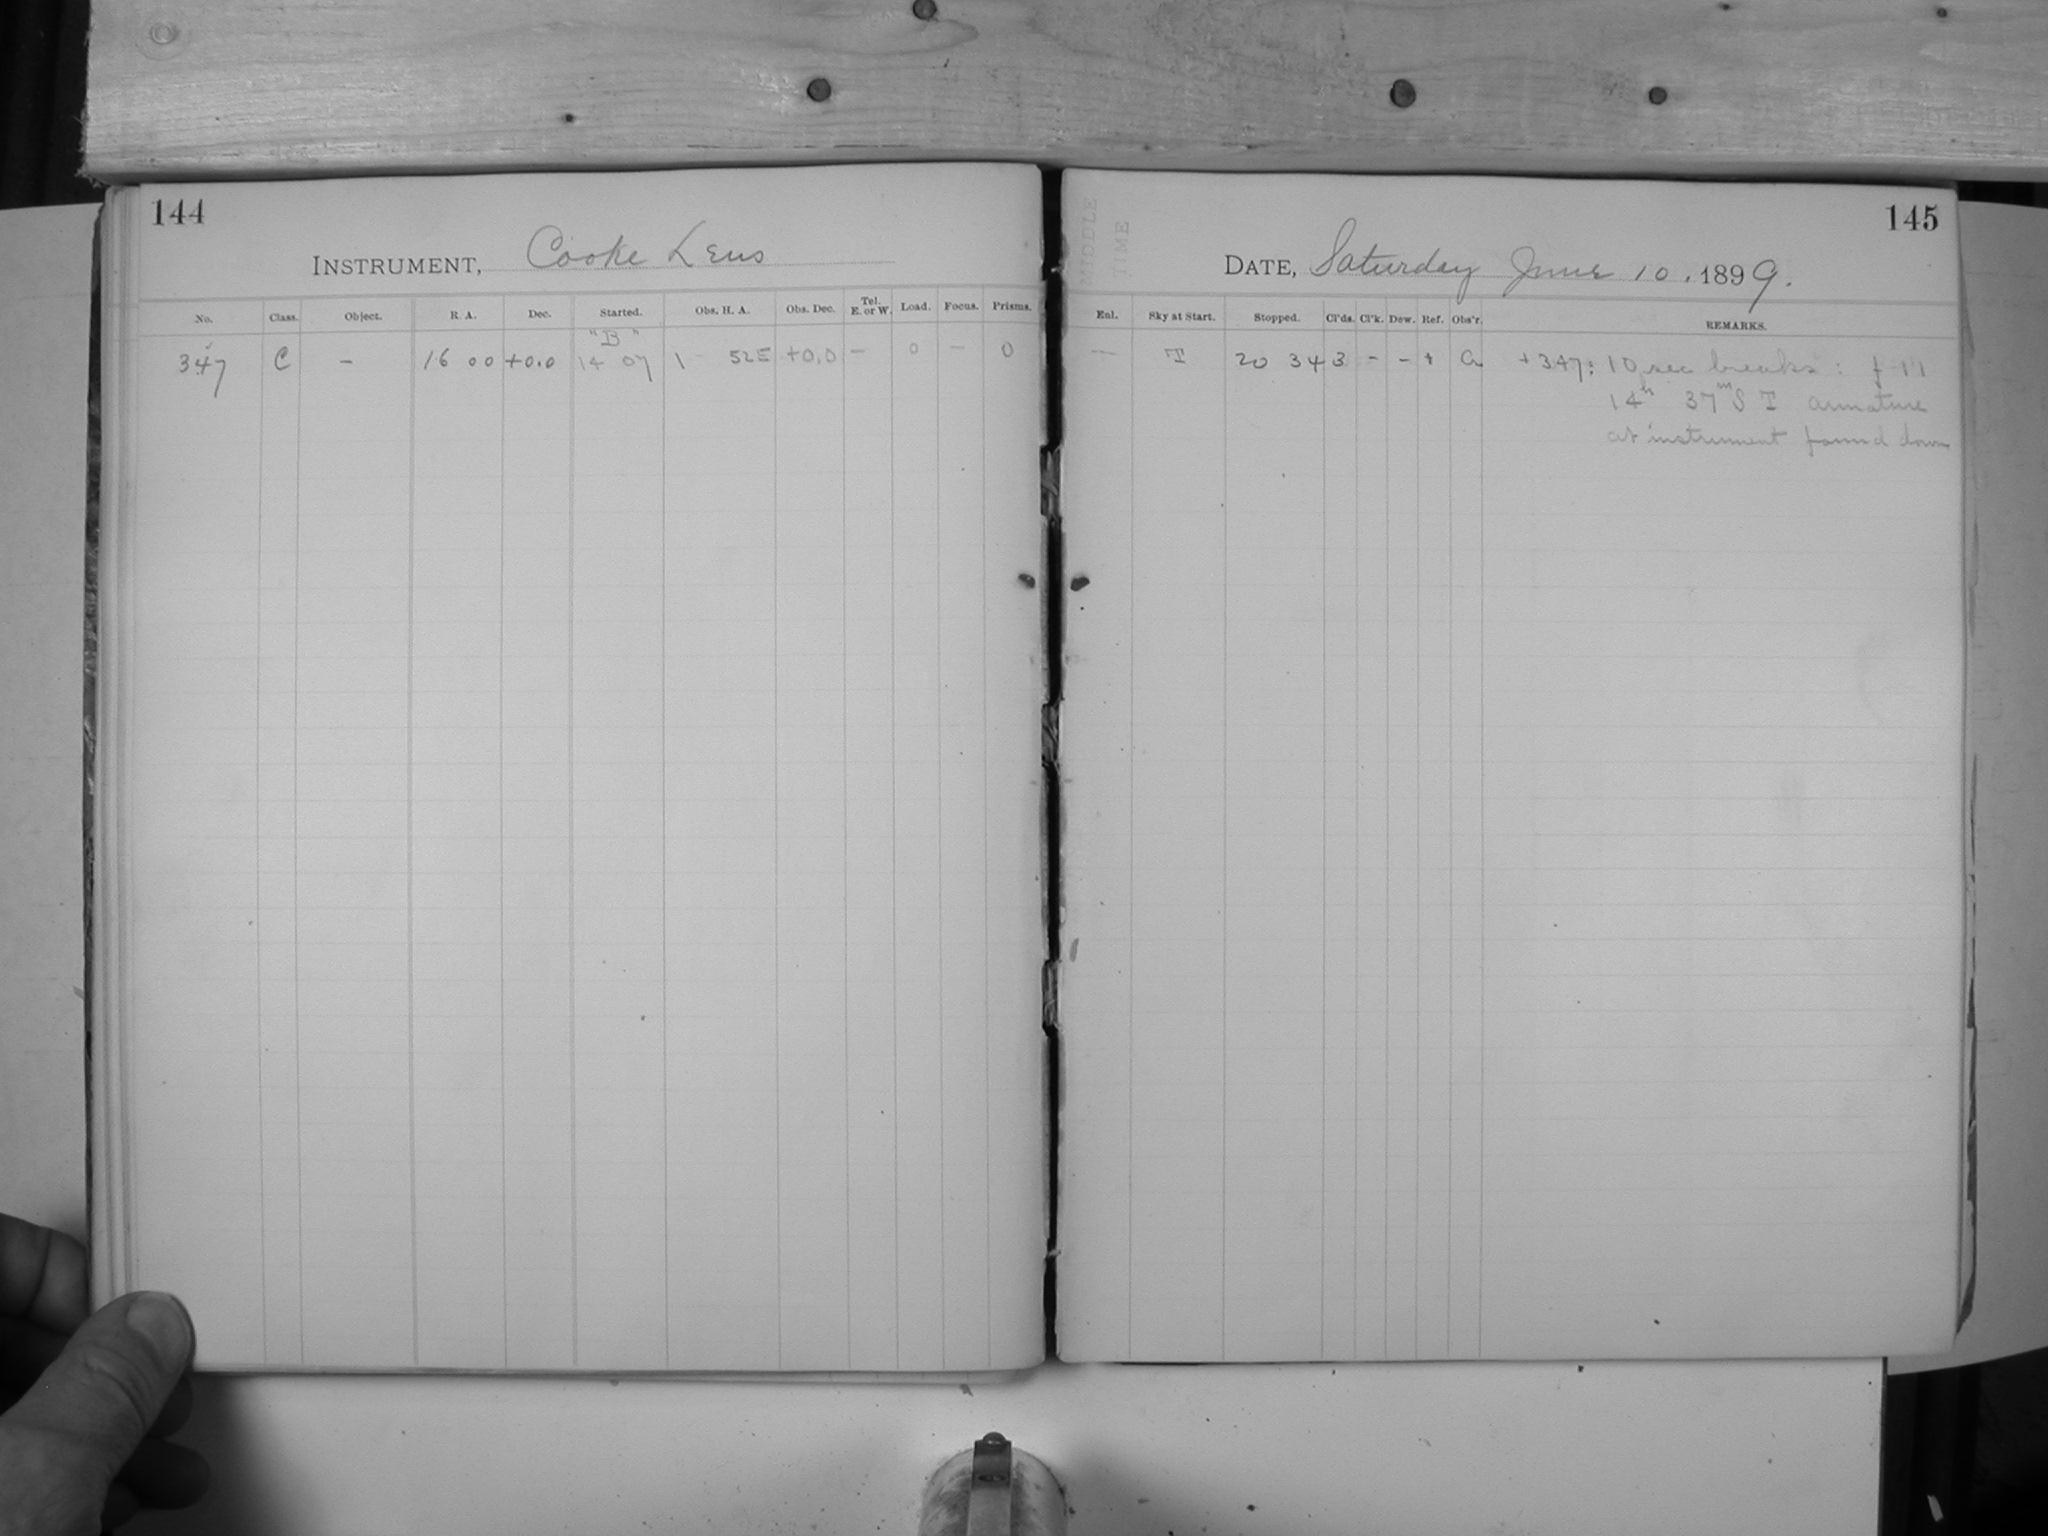 144
INSTRUMENT, Cooke Lens
No. Class. Object. R. A. Dec. Started. Obs. H. A. Obs. Dec. Tel. E. or W. Load. Focus. Prisms.
"B"
347 C – 16 00 +0.0 14 07 1 52E +0.0 – 0 – 0
145
MIDDLE
TIME
DATE, Saturday June 10, 1899.
Enl. Sky at Start. Stopped. Cl'ds. Cl'k. Dew. Ref. Obs'r. REMARKS.
— T 20 34 3 - - + a +347: 10 sec breaks:
14h 37m S T armature
at instrument found down